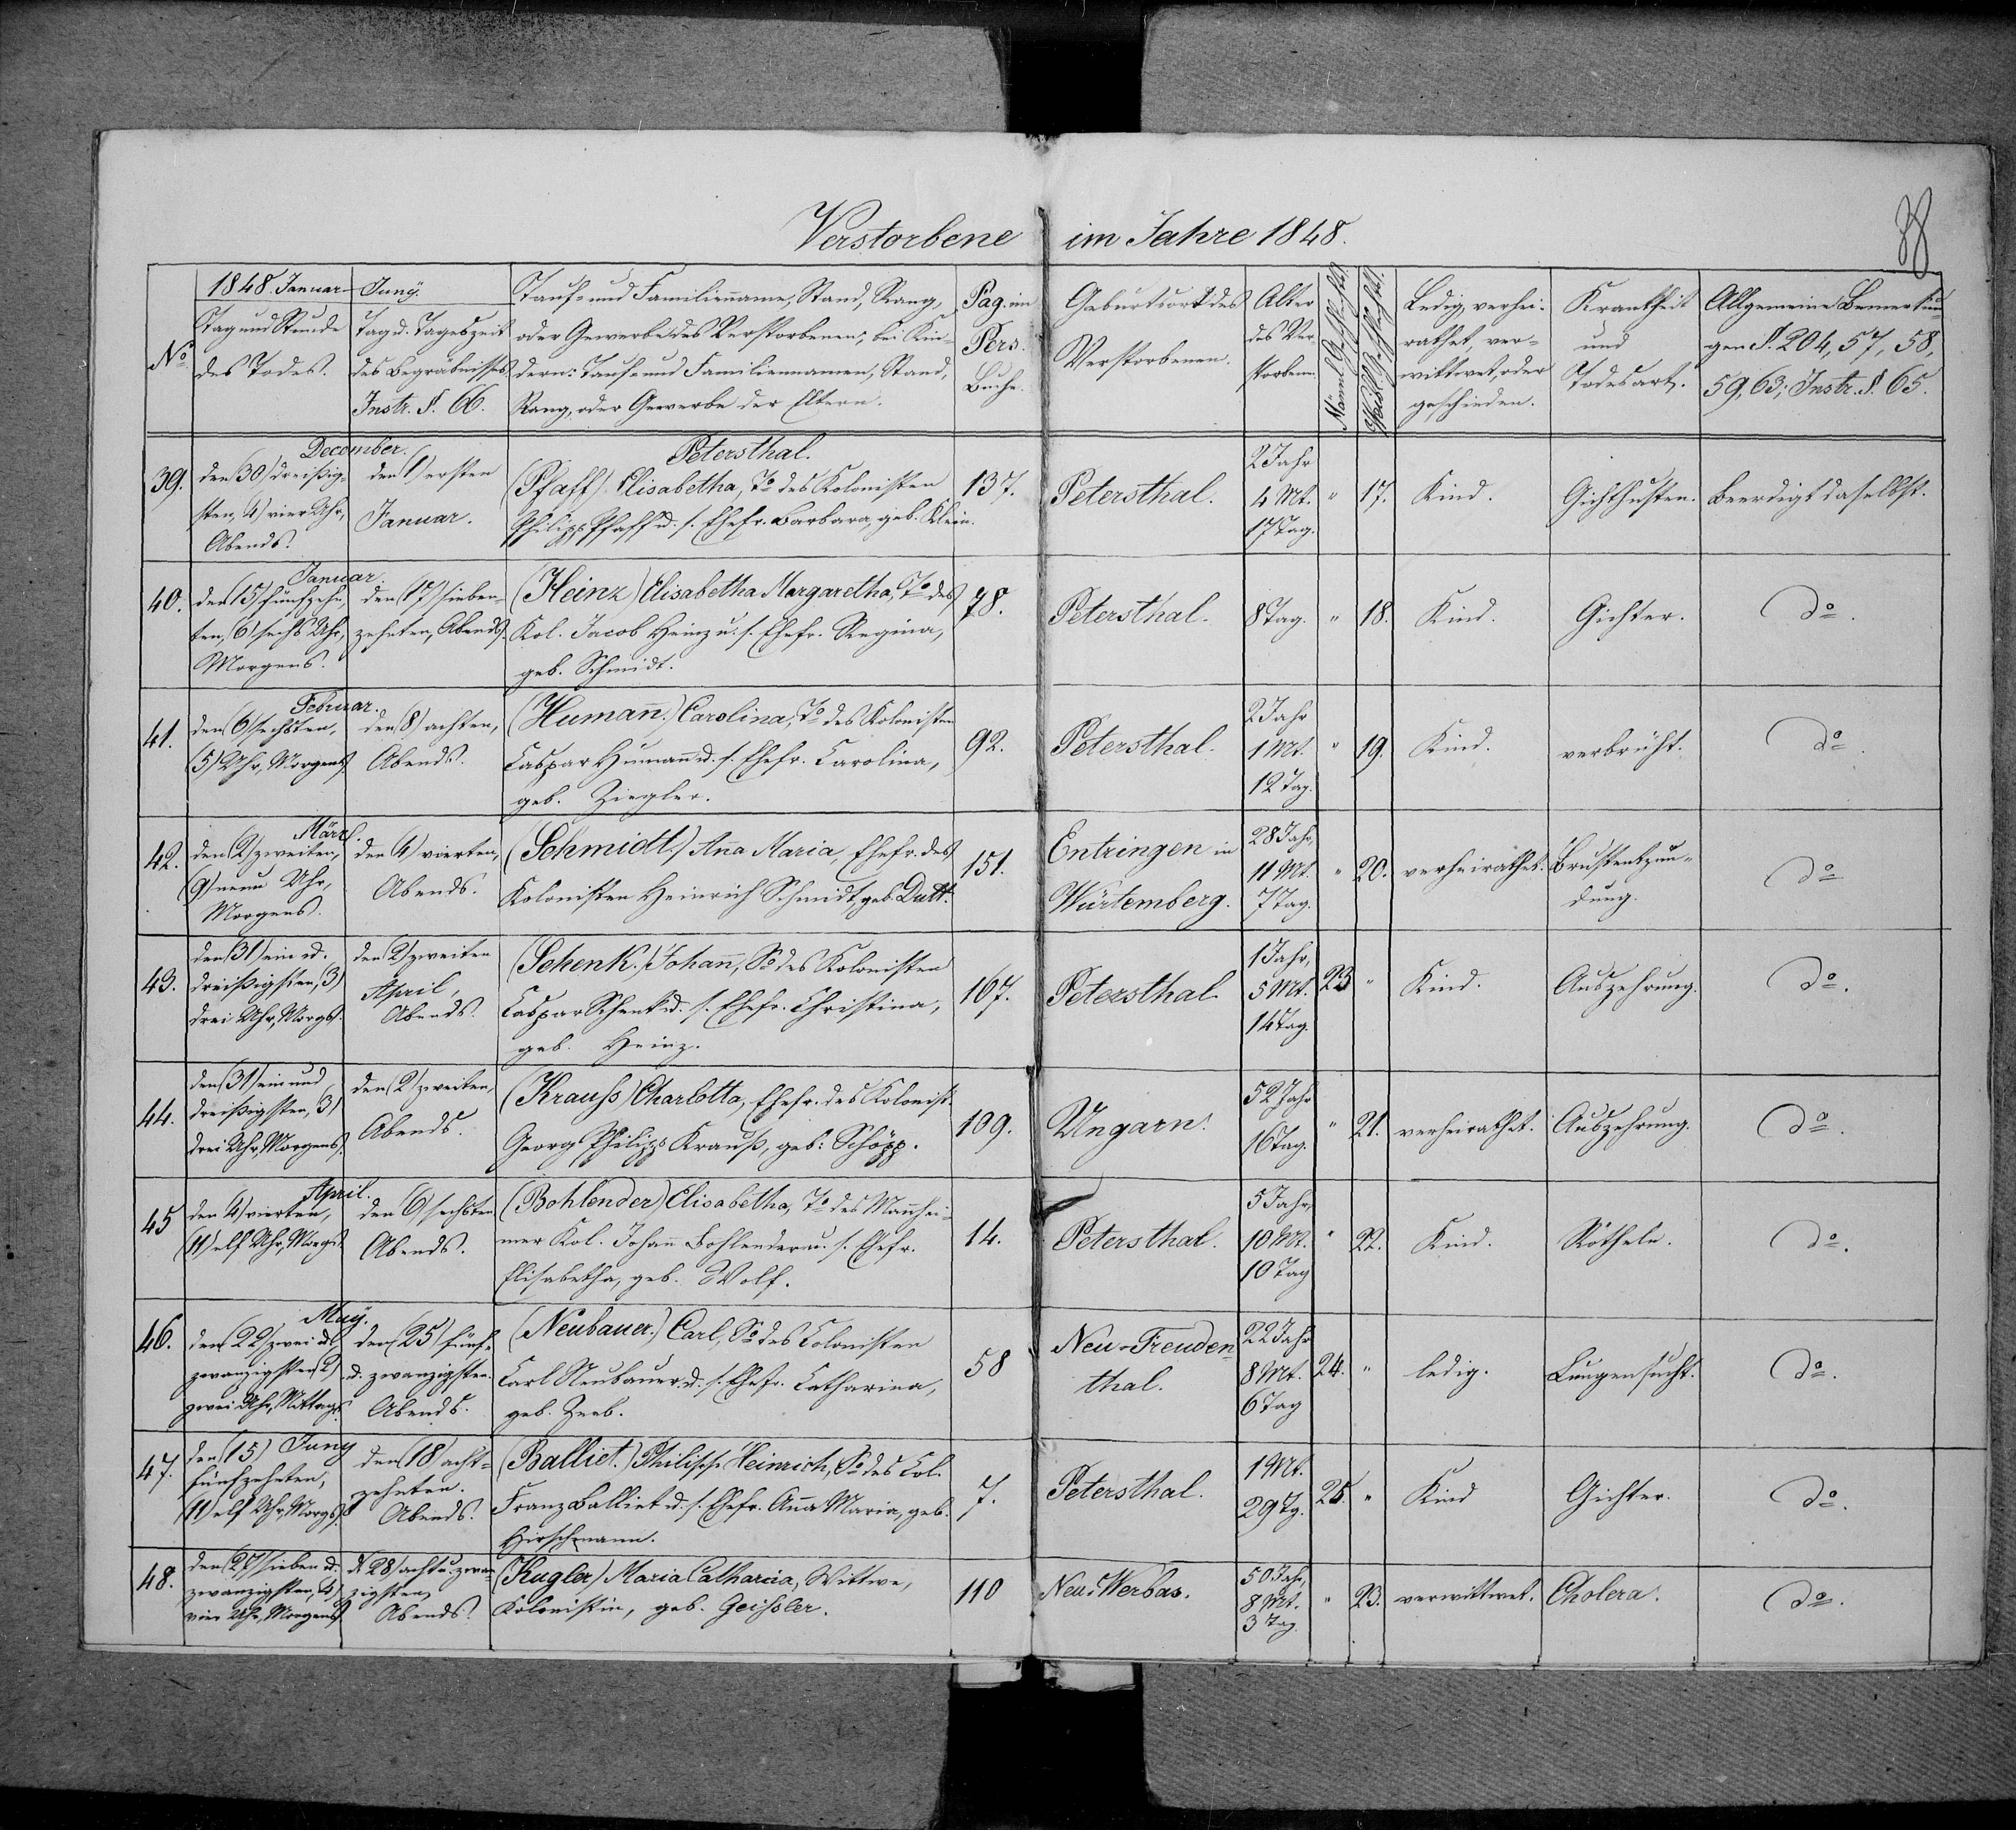 38
Verstorbene im Jahre 1848.
1848. Januar - Juny.
No.
Tag und Stunde
des Todes.
Tag u. Tageszeit
des Begräbnisses.
Instr. §. 66.
Tauf- und Familienname, Stand, Rang,
oder Gewerbe des Verstorbenen; bei Kin-
dern: Tauf- und Familiennamen, Stand,
Rang, oder Gewerbe der Eltern.
Pag. im
Pers.
Buche.
Geburtsort des
Verstorbenen.
Alter
des Ver-
storbenen.
Männl. Geschlechts.
Weibl. Geschlechts.
Ledig, verhei-
rathet, ver-
wittwet, oder
geschieden.
Krankheit
und
Todesart.
Allgemeine Bemerkun-
gen §. 204, 57, 58,
59, 63; Instr. §. 65.
December.
39.
den (30) dreißig-
sten, (4) vier Uhr,
Abends.
den (1) ersten
Januar.
Petersthal.
(Pfaff) Elisabetha, To des Kolonisten
Philipp Pfaff u. s. Ehefr. Barbara, geb. Klein.
137.
Petersthal.
2 Jahr
4 Mt.
17 Tag.
" 17.
Kind.
Gichthusten.
Beerdigt daselbst.
Januar.
40.
den (15) fünfzehn-
ten, (6) sechs Uhr,
Morgens.
den (17) sieben-
zehnten, Abends.
(Heinz) Elisabetha Margaretha, To des
Kol. Jacob Heinz u. s. Ehefr. Regina,
geb. Schmidt.
78.
Petersthal.
8 Tag.
" 18.
Kind.
Gichter.
do.
Februar.
41.
den (6) sechsten,
(5) Uhr, Morgens
den (8) achten,
Abends.
(Humañ.) Carolina, To des Kolonisten
Caspar Humañ u. s. Ehefr. Carolina,
geb. Ziegler.
92.
Petersthal.
2 Jahr
1 Mt.
12 Tag.
" 19.
Kind.
verbrüht.
do.
März.
42.
den (2) zweiten,
(9) neun Uhr,
Morgens.
den (4) vierten,
Abends.
(Schmidt.) Aña Maria, Ehefr. des
Kolonisten Heinrich Schmidt, geb. Dutt.
151.
Entringen in
Würtemberg.
28 Jahr,
11 Mt.
7 Tag.
" 20.
verheirathet.
Brustentzün-
dung.
do
43.
den (31) ein u.
dreißigsten, (3)
drei Uhr, Morgs.
den (2) zweiten
April,
Abends.
(Schenk.) Johañ, So des Kolonisten
Caspar Schenk u. s. Ehefr. Christina,
geb. Heinz.
167.
Petersthal
1 Jahr,
5 Mt.
14 Tag.
23 "
Kind.
Auszehrung.
do.
44.
den (31) ein und
dreißigsten, (3)
drei Uhr, Morgens.
den (2) zweiten,
Abends.
(Krauss) Charlotta, Ehefr. des Kolonist.
Georg Philipp Krauß, geb. Schöpp.
109.
Ungarn.
52 Jahr
16 Tag.
" 21.
verheirathet.
Auszehrung.
do.
April.
45
den (4) vierten,
(11) elf Uhr, Morgs.
den (6) sechsten
Abends.
(Bohlender) Elisabetha, To des Mañhei-
mer Kol. Johañ Bohlender u. s. Ehefr.
Elisabetha, geb. Wolf.
14.
Petersthal.
5 Jahr,
10 Mt.
10 Tag
" 22.
Kind.
Rötheln.
do.
May.
46.
den (22) zwei u.
zwanzigsten (2)
zwei Uhr, Mittags
den (25) fünf-
u. zwanzigsten.
Abends.
(Neubauer.) Carl, So des Colonisten
Carl Neubauer u. s. Ehefr. Catharina,
geb. Zeeb.
58
Neu-Freuden-
thal.
22 Jahr
8 Mt.
6 Tag
24. "
ledig.
Lungensucht.
do.
Juny
47.
den (15)
fünfzehnten,
(11) elf Uhr, Morgs.
den (18) acht-
zehnten.
Abends.
(Balliet.) Philipp Heinrich, So des Col.
Franz Balliet u. s. Ehefr. Aña Maria, geb.
Hirschmann.
7.
Petersthal.
1 Mt.
29 Tg.
25. "
Kind
Gichter.
do.
48.
den (27) sieben u.
zwanzigsten, (4)
vier Uhr, Morgens
d. 28) acht u. zwan-
zigsten,
Abends.
(Kugler) Maria Catharina, Wittwe,
Kolonistin, geb. Geissler.
110
Neu-Werbas.
50 Jahr,
8 Mt.
3 Tag.
" 23.
verwittwet.
Cholera.
do.